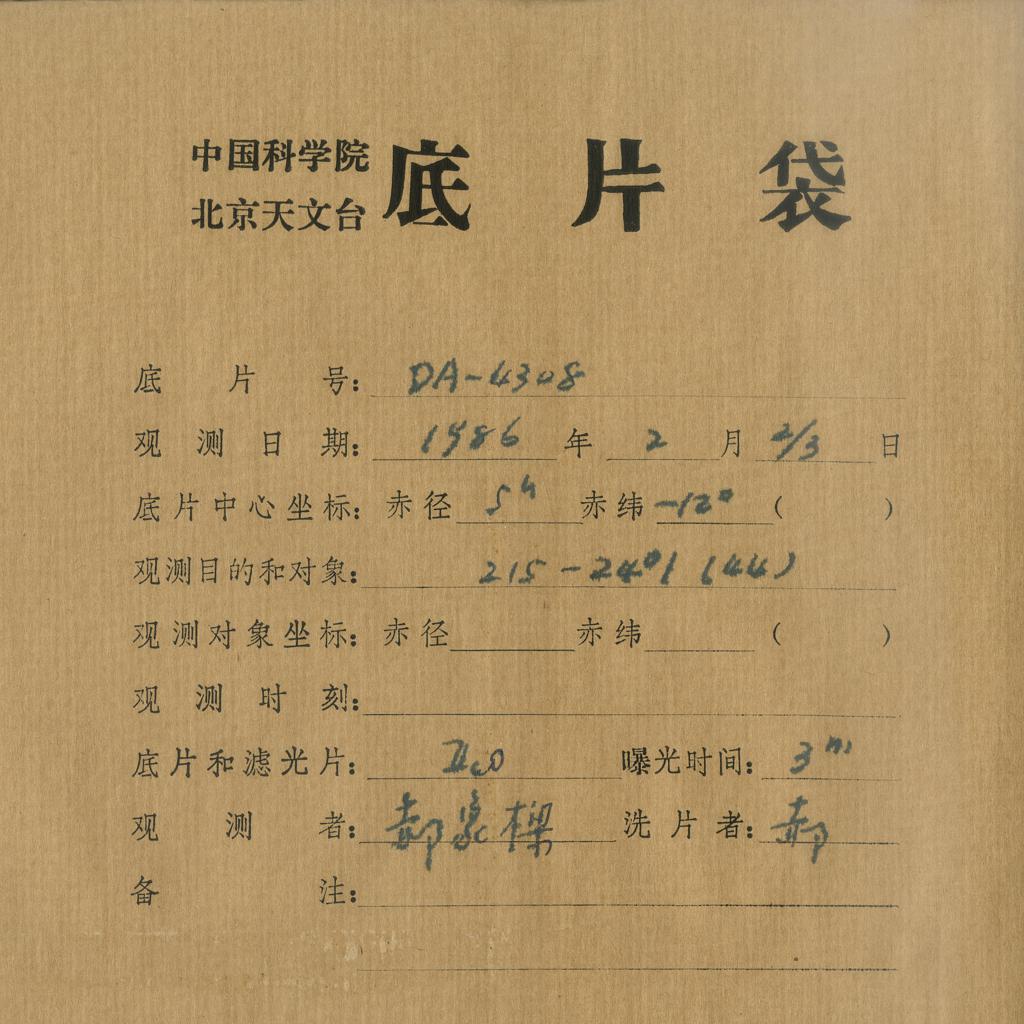 中国科学院
北京天文台
底片袋
底片号: DA-4308
观测日期: 1986 年 2 月 2/3 日
底片中心坐标: 赤径 5h 赤纬 -12° ( )
观测目的和对象: 215-2401 (44)
观测对象坐标: 赤径 赤纬 ( )
观测时刻:
底片和滤光片: 曝光时间: 3m
观测者: 郝象樑 洗片者: 郝
备注: